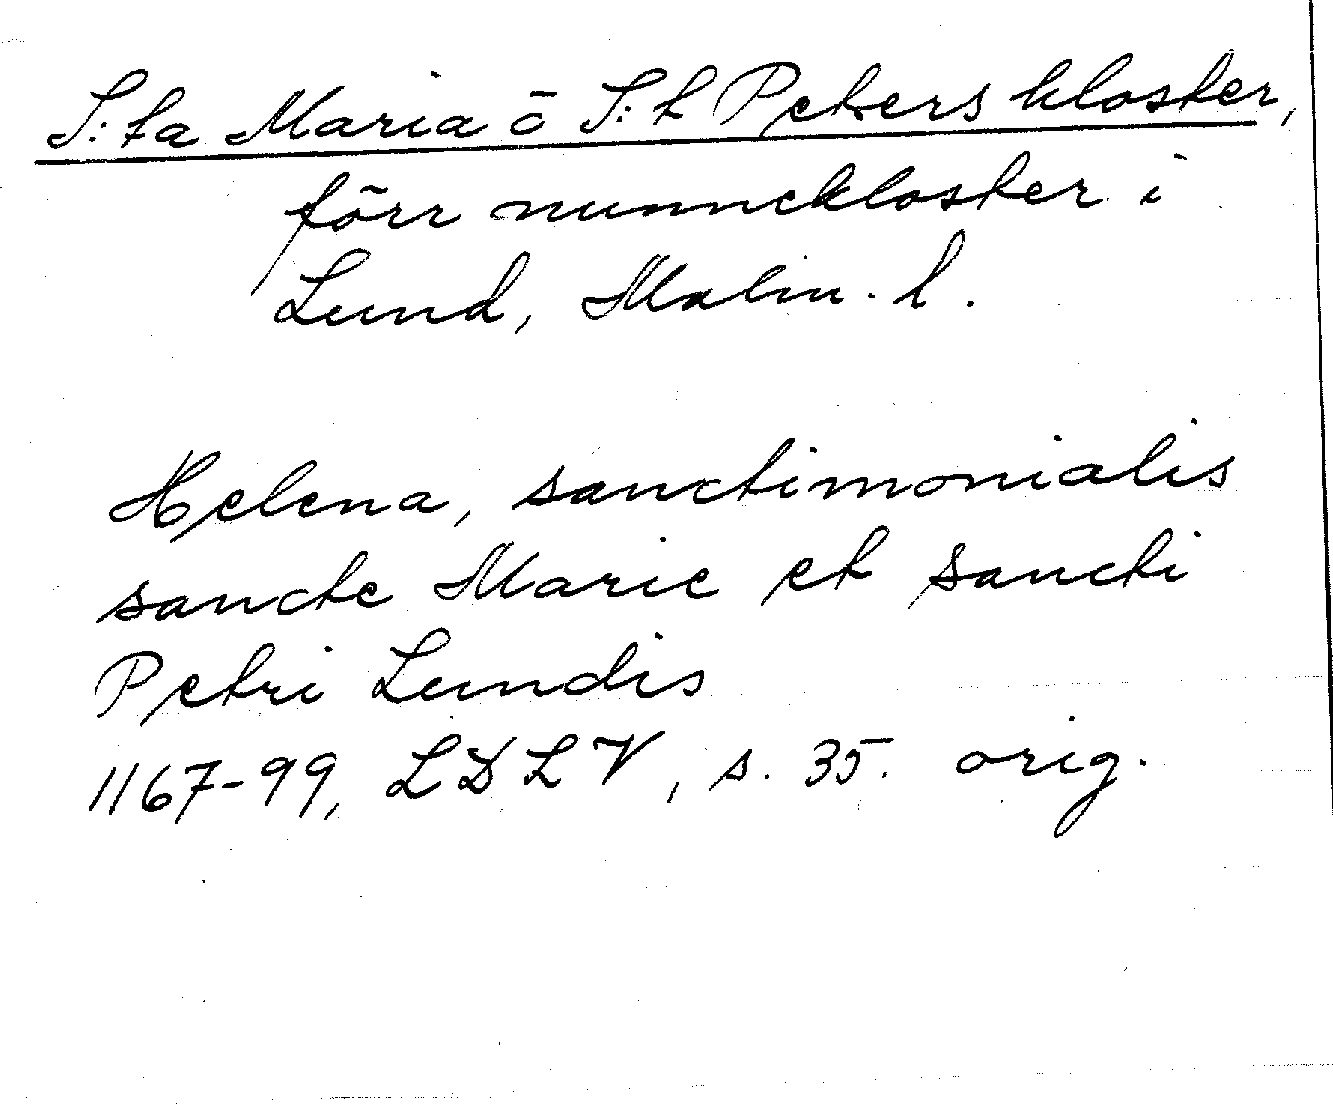 S:ta Maria o S:t Peters kloster,
förr nunnekloster i
Lund, Malm. l.
Helena, sanctimonialis
sancte Marie et sancti
Petri Lundis
1167-99, LDLV, s. 35. orig.